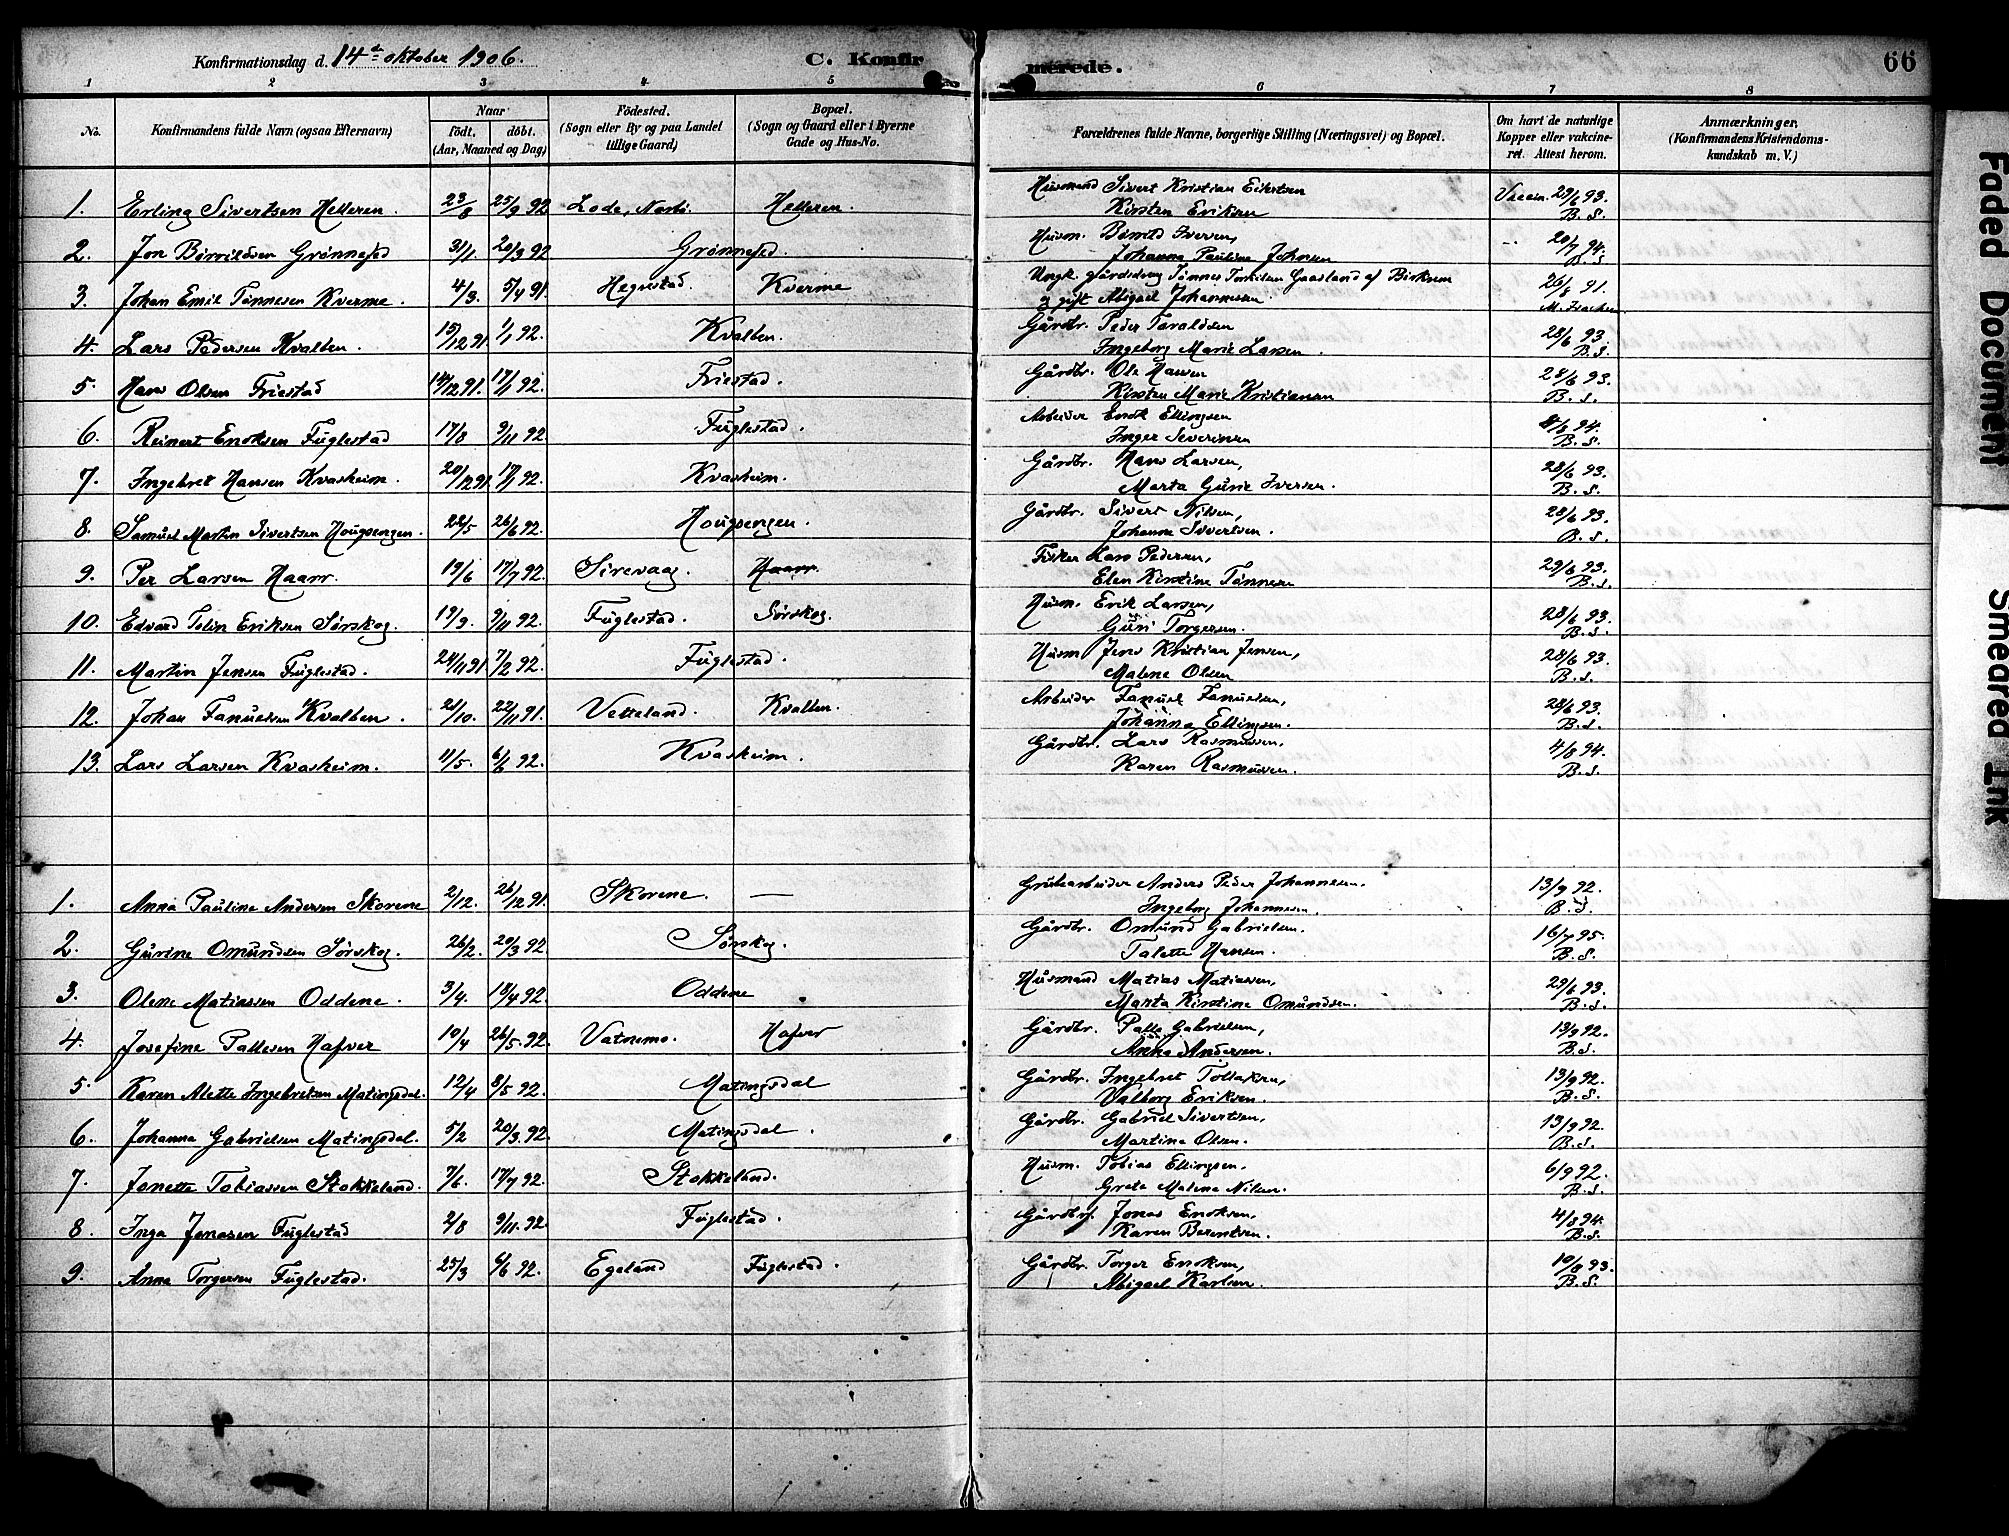 Konfirmationsdag d. 14de oktober 1906. C. Konfirmerede. 66
1 2 3 4 5 6 7 8
No. Konfirmandens fulde Navn (ogsaa Efternavn) Naar født. døbt. (Aar, Maaned og Dag) Fødested. (Sogn eller By og paa Landet tillige Gaard) Bopæl. (Sogn og Gaard eller i Byerne Gade og Hus-No. Forældrenes fulde Navne, borgerlige Stilling (Næringsvei) og Bopæl. Om havt de naturlige Kopper eller vakcineret. Attest herom. Anmærkninger, (Konfirmandens Kristendomskundskab m. V.)
1. Erling Sivertsen Helleren. 23/8 25/9 92 Lode, Helleren. Husmand Sivert Kristian Eikesen Vaccin. 29/6 93.
Kirsten Eriksen B. S.
2. Jon Børrildsen Grønnesed 31/1. 20/3 92 Grønnesed. Husm. Børrild Iversen, 20/7 94.
Johanna Pauline Johnsen B. S.
3. Johan Emil Tønnesen Kverme. 4/3. 5/4 91. Hegrestad. Kverme Ungk. gårdsdreng Tønnes Torkilsen Gaasland af Birkrem 26/8 91.
og gift Abigael Johannesen.
4. Lars Pedersen Kvalben. 15/12 91 1/1 92. Kvalben. Gårdbr. Peder Taraldsen 28/6 93.
Ingeborg Marie Larsen. B. S.
5. Hans Olsen Friestad 14/12 91. 17/1 92. Friestad. Gårdbr. Ole Hansen 28/6 93.
Kirsten Marie Kristiansen B. S.
6. Reinert Enoksen Fuglestad 17/8 9/11 92 Fuglestad. Arbeider Enok Ellingsen 4/8 94.
Inger Severinsen B. S.
7. Ingebret Hansen Kvasheim. 20/12 91 17/1 92. Kvasheim. Gårdbr. Hans Larsen, 28/6 93.
Marta Gurie Iversen. B. S.
8. Samuel Martin Sivertsen Hougsengen. 22/5 26/6 92. Hougsengen. Gårdbr. Sivert Nilsen, 28/6 93.
Johanna Sivertsen. B. S.
9. Per Larsen Haarr. 19/6 17/7 92. Sirevaag. Haarr. Fisker Lars Pedersen, 29/6 93.
Elen Kirstine Tønnesen B. S.
10. Edvard Tolin Eriksen Sørskog. 19/9. 9/11 92. Fuglestad. Sørskog. Husm. Erik Larsen, 28/6 93.
Guri Torgersen. B. S.
11. Martin Jensen Fuglestad. 24/11 91 7/2 92. Fuglestad. Husm Jens Kristian Jensen, 28/6 93.
Malene Olsen B. S.
12. Johan Fanuelsen Kvalben. 21/10. 22/11 91. Vetteland. Kvalben. Arbeider Fanuel Fanuelsen, 28/6 93.
Johanna Ellingsen. B. S.
13. Lars Larsen Kvasheim. 11/5. 6/6 92. Kvasheim. Gårdbr. Lars Rasmussen, 4/8 94.
Karen Rasmussen. B. S.
1. Anna Pauline Andersen Skorene 2/12. 26/12 91 Skorene. — Grubearbeider Anders Peder Johannesen. 13/9 92.
Ingeborg Johannesen. B. S.
2. Gurine Omundsen Sørskog. 26/2. 20/3 92 Sørskog. Gårdbr. Omund Gabrielsen. 16/7 95.
Talette Hansen. B. S.
3. Olene Matiassen Oddene. 3/4. 18/4 92. Oddene Husmand Matias Matiassen, 29/6 93.
Marta Kirstine Omundsen. B. S.
4. Josefine Pallesen Hafver 10/4 26/5. 92. Vatnemo. Hafver Gårdbr. Palle Gabrielsen, 13/9 92.
Anna Andersen. B. S.
5. Karen Alette Ingebretsen Matingsdal. 12/4 8/5 92. Matingsdal Gårdbr. Ingebret Tollaksen, 13/9 92.
Valborg Eriksen. B. S.
6. Johanna Gabrielsen Matingsdal. 5/2 20/3. 92. Matingsdal. Gårdbr. Gabriel Sivertsen, 13/9 92.
Martina Olsen. B. S.
7. Janette Tobiassen Stokkeland. 7/6. 17/7 92. Stokkeland. Husm. Tobias Ellingsen. 6/9 92.
Greta Malena Nilsen. B. S.
8. Inga Jonasen Fuglestad 2/8 9/11. 92. Fuglestad. Gårdbr. Jonas Enoksen, 4/8 94.
Karen Berentsen. B. S.
9. Anna Torgersen Fuglestad. 25/3 6/6 92. Egeland Fuglestad. Gårdbr. Torger Enoksen, 10/8 93.
Abigael Karlsen. B. S.
Faded Document
Smeared Ink